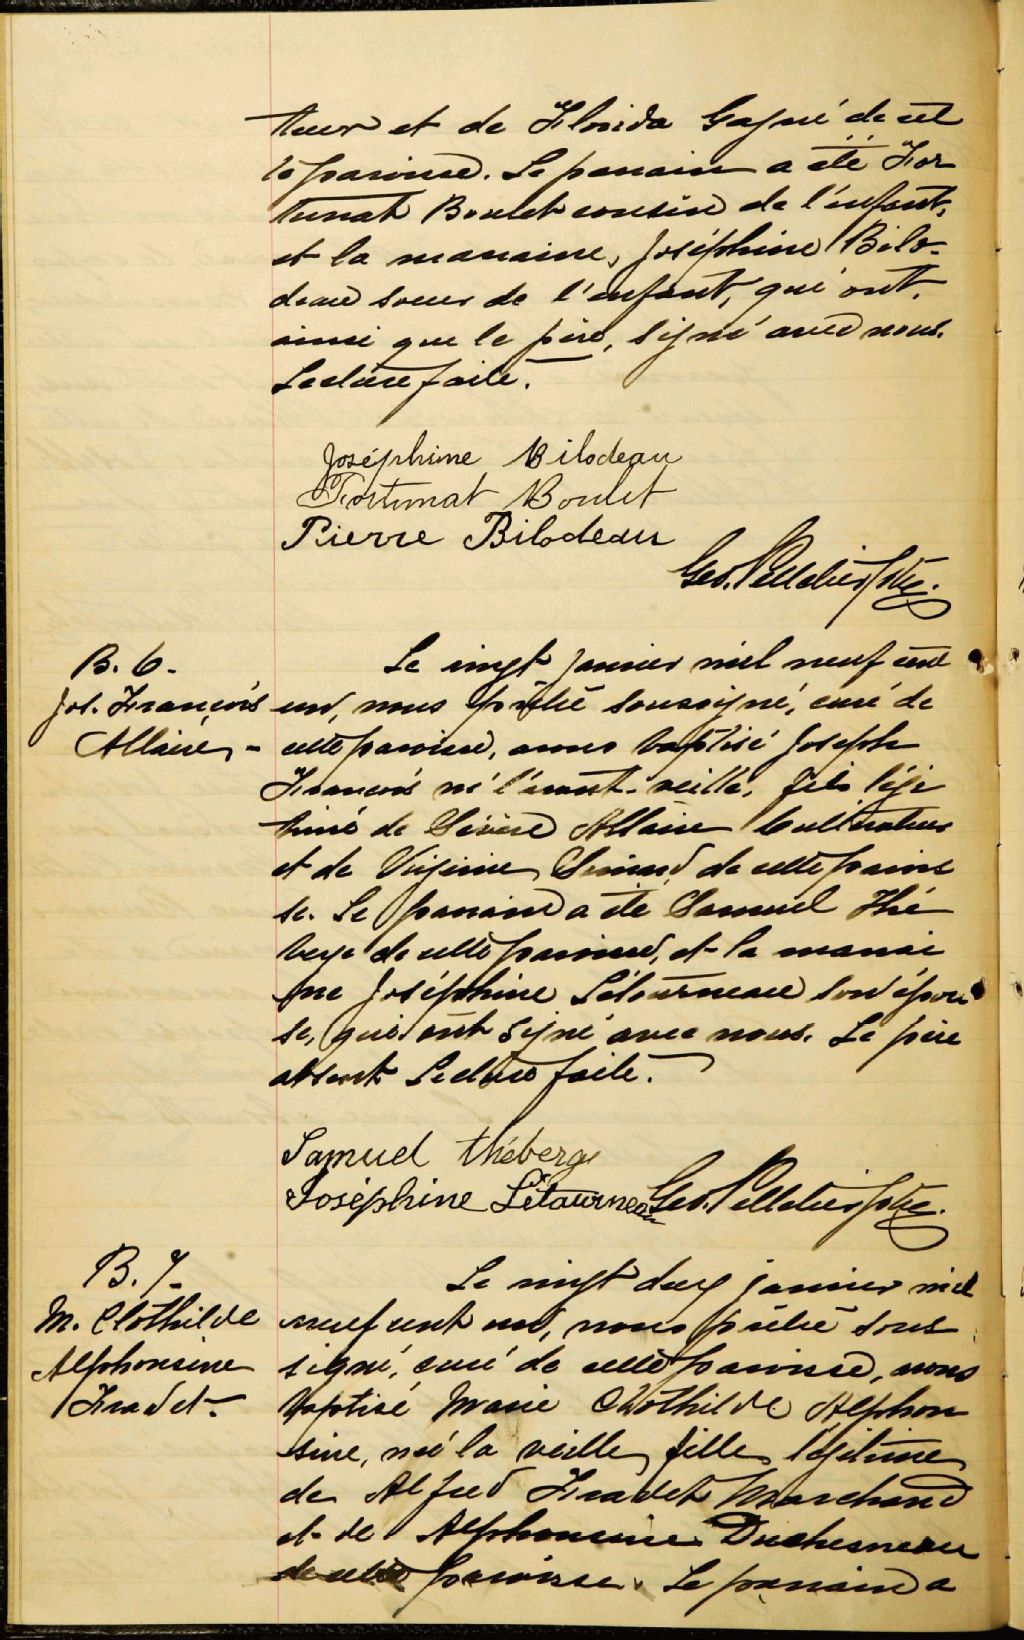 teur et de Florida Gagné de cet
te paroisse. Le parrain a été For
tunat Boulet cousin de l'enfant,
et la marraine, Joséphine Bilo-
deau soeur de l'enfant, qui ont,
ainsi que le père, signé avec nous.
Lecture faite.
Joséphine Bilodeau
Fortunat Boulet
Pierre Bilodeau
Geo. Pelletier Ptre.
B. 6-
Jos. François
Allaire, -
Le vingt janvier mil neuf cent
un, nous prêtre soussigné, curé de
cette paroisse, avons baptisé Joseph
François né l'avant-veille, fils légi
time de Sévère Allaire Cultivateur
et de Virginie Simard de cette parois
se. Le parrain a été Samuel Thé
berge de cette paroisse, et la marrai
ne Joséphine Létourneau son épou
se, qui ont signé avec nous. Le père
absent. Lecture faite.
Samuel théberge
Joséphine Létourneau Geo. Pelletier Ptre.
B. 7-
M. Clothilde
Alphonsine
Fradet.
Le vingt deux janvier mil
neuf cent un, nous prêtre sous
signé, curé de cette paroisse, avons
baptisé Marie Clothilde Alphon
sine, née la veille, fille légitime
de Alfred Fradet Marchand
et de Alphonsine Duchesneau
de cette paroisse. Le parrain a